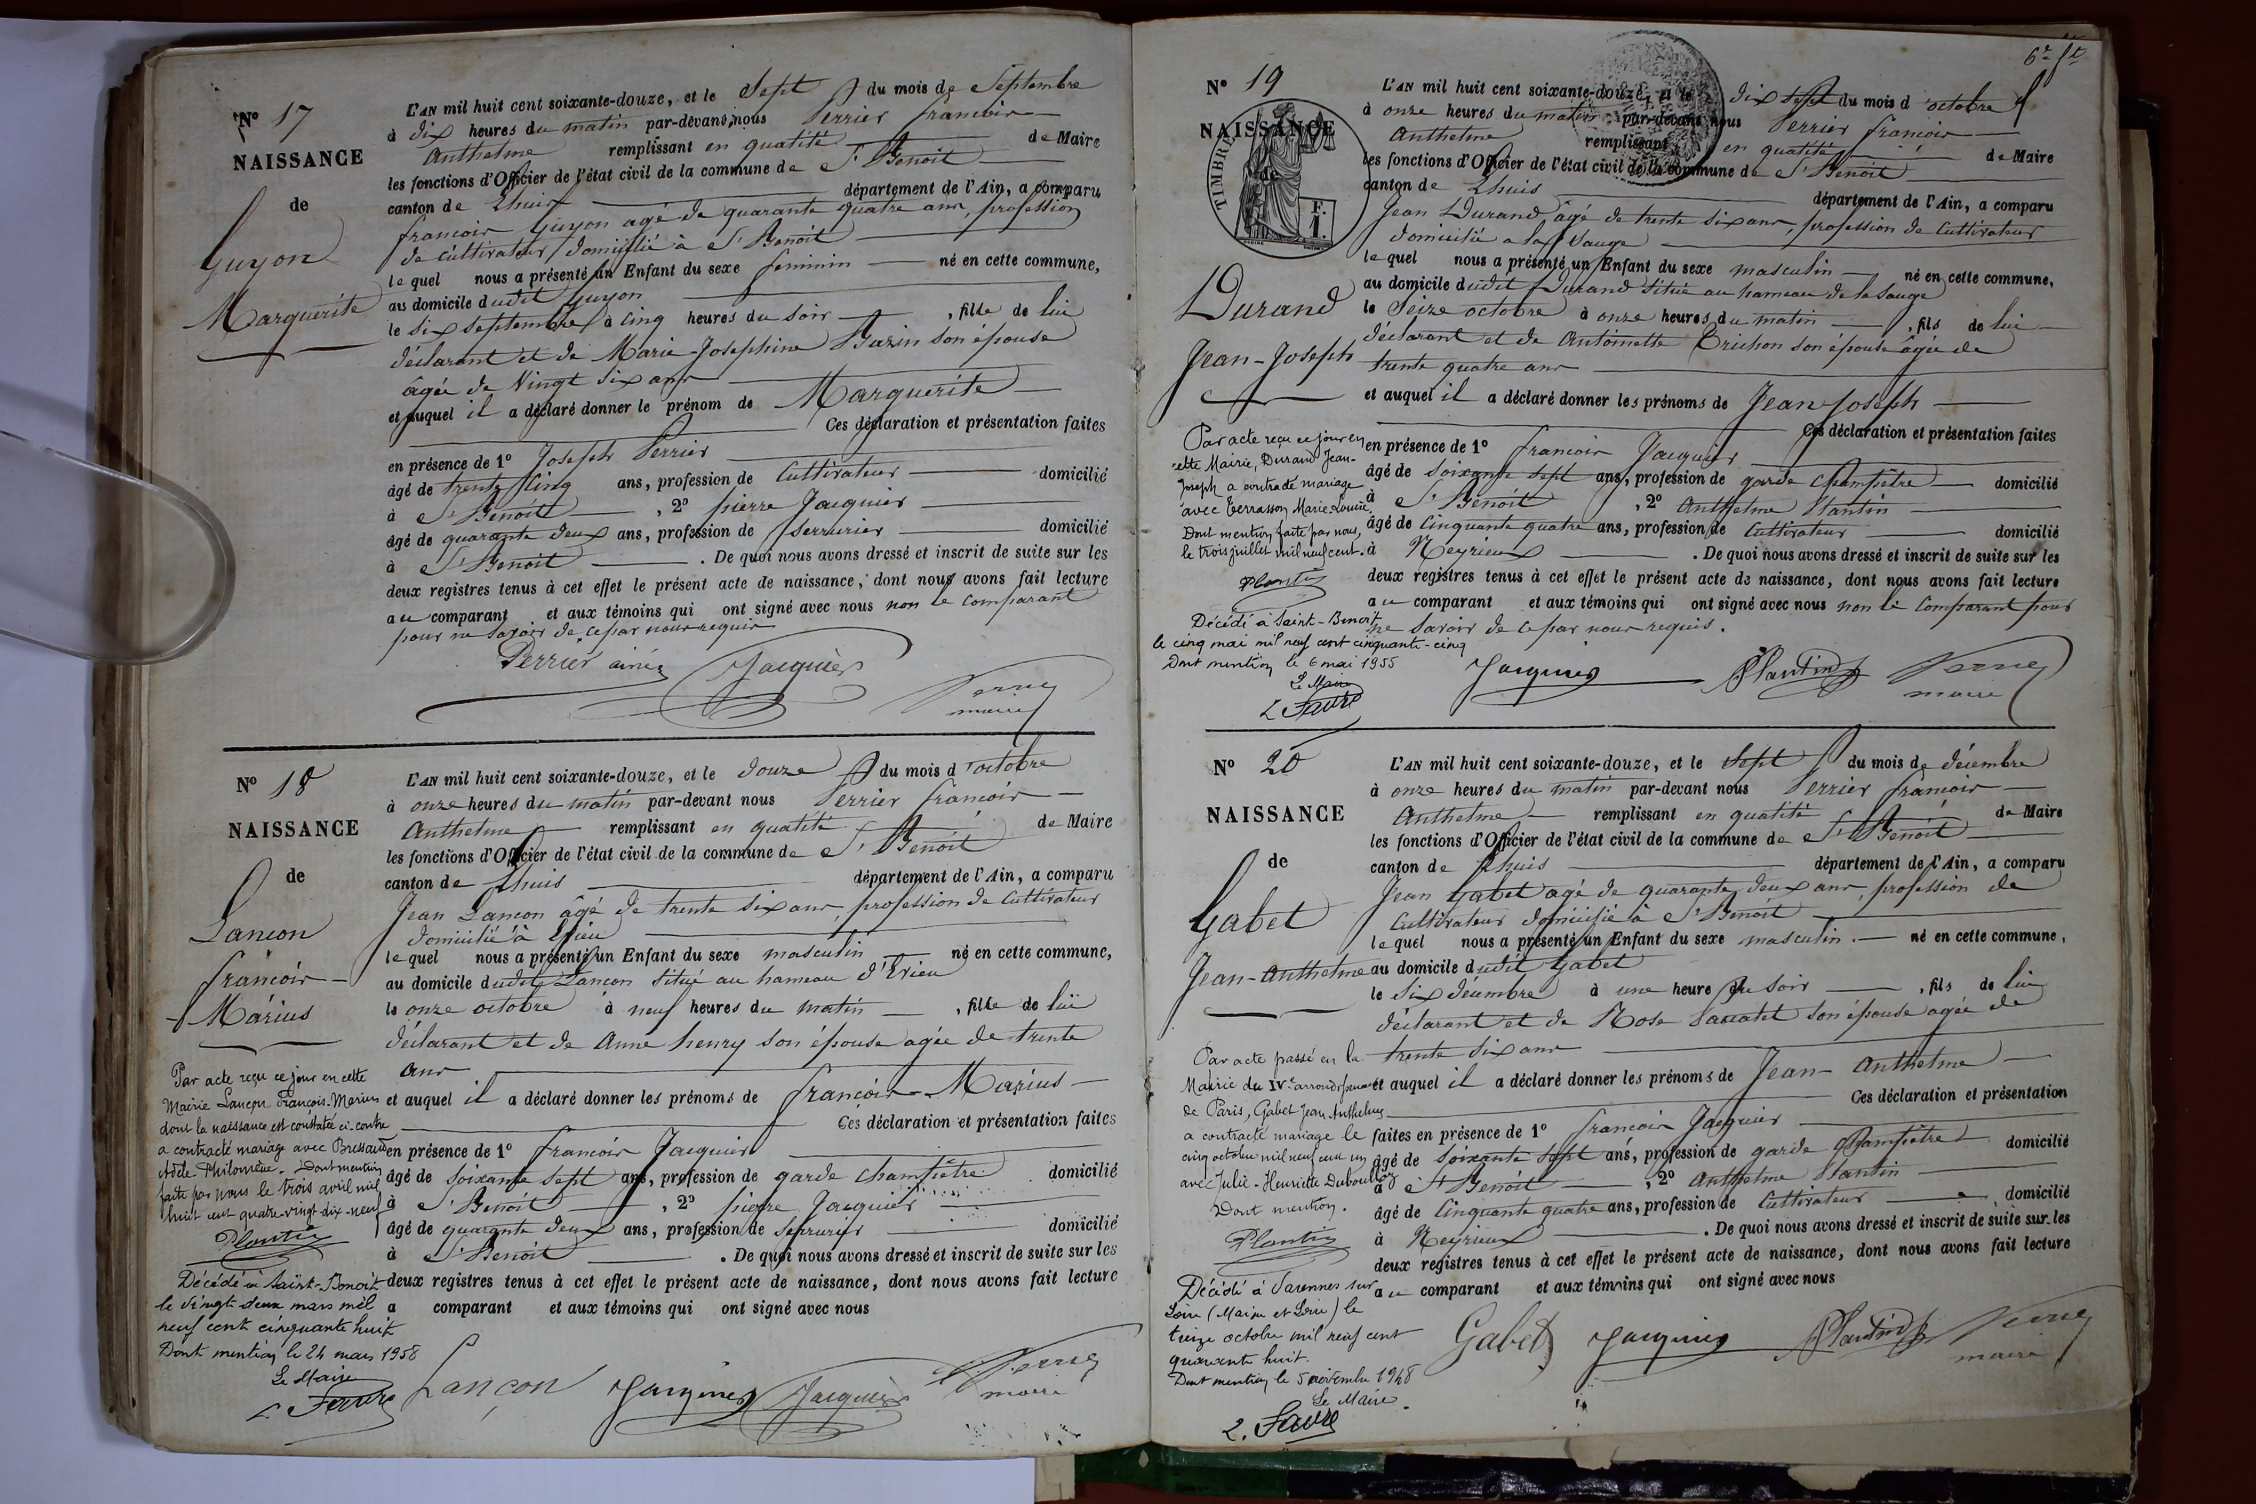 N° 17
NAISSANCE
de
Guyon
Marguerite
L'AN mil huit cent soixante-douze, et le Sept du mois de Septembre
à dix heures du matin par-devant nous Perrier françois
Anthelme remplissant en qualité de Maire
les fonctions d'Officier de l'état civil de la commune de St Benoit
canton de Lhuis département de l'Ain, a comparu
françois Guyon agé de quarante quatre ans, profession
de cultivateur domicilié à St Benoit
lequel nous a présenté un Enfant du sexe feminin né en cette commune,
au domicile dudit Guyon
le six septembre à cinq heures du soir , fille de lui
déclarant et de Marie Josephine Burin son épouse
âgée de Vingt six ans
et auquel il a déclaré donner le prénom de Marguerite
Ces déclaration et présentation faites
en présence de 1° Joseph Perrier
âgé de trente cinq ans, profession de Cultivateur domicilié
à St Benoit , 2° pierre Jacquier
âgé de quarante deux ans, profession de Serrurier domicilié
à St Benoit . De quoi nous avons dressé et inscrit de suite sur les
deux registres tenus à cet effet le présent acte de naissance, dont nous avons fait lecture
au comparant et aux témoins qui ont signé avec nous non le Comparant
pour ne savoir de ce par nous requis
Perrier ainé Jacquier Perrier
maire
N° 18
NAISSANCE
de
Lancon
françois
Marius
L'AN mil huit cent soixante-douze, et le douze du mois d'octobre
à onze heures du matin par-devant nous Perrier françois
Anthelme remplissant en qualité de Maire
les fonctions d'Officier de l'état civil de la commune de St Benoit
canton de Lhuis département de l'Ain, a comparu
Jean Lancon âgé de trente six ans, profession de Cultivateur
domicilié à Evieu
lequel nous a présenté un Enfant du sexe masculin né en cette commune,
au domicile dudit Lancon situé au hameau d'Evieu
le onze octobre à neuf heures du matin , fille de lui
déclarant et de Anne henry son épouse agée de trente
ans
et auquel il a déclaré donner les prénoms de françois-Marius
Ces déclaration et présentation faites
en présence de 1° francois Jacquier
âgé de soixante sept ans, profession de garde Champêtre domicilié
à St Benoit , 2° pierre Jacquier
âgé de quarante deux ans, profession de serrurier domicilié
à St Benoit . De quoi nous avons dressé et inscrit de suite sur les
deux registres tenus à cet effet le présent acte de naissance, dont nous avons fait lecture
a comparant et aux témoins qui ont signé avec nous
Lançon Jacquier Jacquier Perrier
maire
Par acte reçu ce jour en cette
Mairie Lançon François-Marius
dont la naissance est constatée ci-contre
a contracté mariage avec Bressand
Adèle Philomène. Dont mention
faite par nous le trois avril mil
huit cent quatre-vingt-dix-neuf
Plantin
Décédé à Saint-Benoit
le vingt-deux mars mil
neuf cent cinquante huit
Dont mention le 24 mars 1958
Le Maire
L Favre
6e ft
N° 19
NAISSANCE
de
TIMBRE
F.
1.
Durand
Jean-Joseph
L'AN mil huit cent soixante-douze, et le dix sept du mois d'octobre
à onze heures du matin par-devant nous Perrier françois
Anthelme remplissant en qualité de Maire
les fonctions d'Officier de l'état civil de la commune de St Benoit
canton de Lhuis département de l'Ain, a comparu
Jean Durand âgé de trente six ans, profession de Cultivateur
domicilié a la Sauge
lequel nous a présenté un Enfant du sexe masculin né en cette commune,
au domicile dudit Durand située au hameau de la Sauge
le Seize octobre à onze heures du matin , fils de lui
déclarant et de Antoinette Crichon son épouse âgée de
trente quatre ans
et auquel il a déclaré donner les prénoms de Jean Joseph
Ces déclaration et présentation faites
en présence de 1° françois Jacquier
âgé de soixante sept ans, profession de garde Champêtre domicilié
à St Benoit , 2° Anthelme Plantin
âgé de Cinquante quatre ans, profession de Cultivateur domicilié
à Neyrieux . De quoi nous avons dressé et inscrit de suite sur les
deux registres tenus à cet effet le présent acte de naissance, dont nous avons fait lecture
au comparant et aux témoins qui ont signé avec nous non le Comparant pour
ne savoir de ce par nous requis.
Jacquier Plantin Perrier
maire
Par acte reçu ce jour en
cette Mairie, Durand Jean-
Joseph a contracté mariage
avec Terrasson Marie-Louise,
Dont mention faite par nous,
le trois juillet mil neuf cent.
Plantin
Décédé à Saint-Benoit
le cinq mai mil neuf cent cinquante-cinq
Dont mention le 6 mai 1955
Le Maire
L Favre
N° 20
NAISSANCE
de
Gabet
Jean-Anthelme
L'AN mil huit cent soixante-douze, et le Sept du mois de décembre
à onze heures du matin par-devant nous Perrier françois
Anthelme remplissant en qualité de Maire
les fonctions d'Officier de l'état civil de la commune de St Benoit
canton de Lhuis département de l'Ain, a comparu
Jean Gabet agé de quarante deux ans, profession de
Cultivateur domicilié à St Benoit
lequel nous a présenté un Enfant du sexe masculin. né en cette commune,
au domicile dudit Gabet
le Six décembre à une heure du soir , fils de lui
déclarant et de Rose son épouse agée de
trente six ans
et auquel il a déclaré donner les prénoms de Jean-Anthelme
Ces déclaration et présentation
faites en présence de 1° francois Jacquier
âgé de soixante sept ans, profession de garde Champêtre domicilié
à St Benoit , 2° Anthelme Plantin
âgé de Cinquante quatre ans, profession de Cultivateur domicilié
à Neyrieux . De quoi nous avons dressé et inscrit de suite sur les
deux registres tenus à cet effet le présent acte de naissance, dont nous avons fait lecture
au comparant et aux témoins qui ont signé avec nous
Gabet Jacquier Plantin Perrier
maire
Par acte passé en la
Mairie du IVe arrondissement
de Paris, Gabet Jean Anthelme
a contracté mariage le
cinq octobre mil neuf cent un
avec Julie-Henriette
Dont mention.
Plantin
Décédé à Varennes sur
Loire (Maine et Loire) le
treize octobre mil neuf cent
quarante huit.
Dont mention le 5 novembre 1948
Le Maire
L. Favre